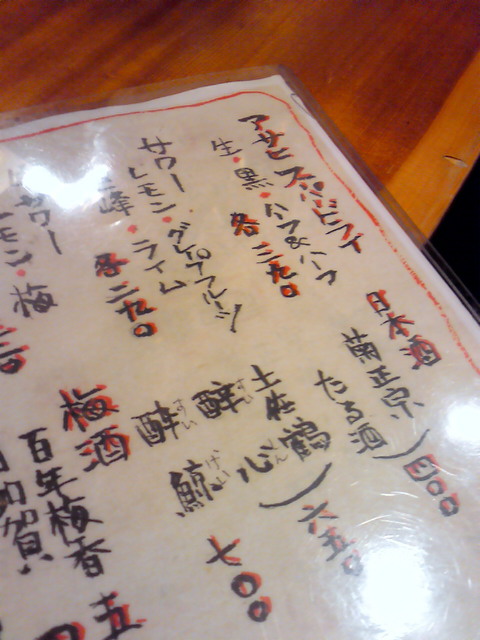 アサヒスーパードライ
生・黒・ハーフ&ハーフ
各三九〇
サワー
レモン・グレープフルーツ
ライム
各二九〇
サワー
梅
日本酒
菊正宗
たる酒
四〇〇
土佐鶴
酔心
六五〇
酔鯨
七〇〇
梅酒
百年梅香
加賀
五